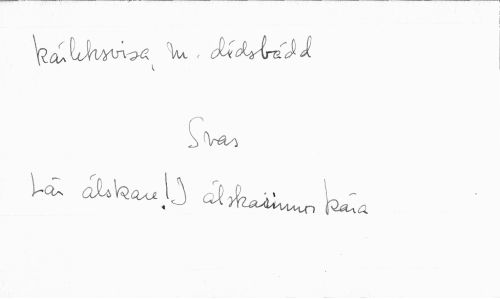 kärleksvisa, m. dödsbädd
Svas
Lär älskare! I älskarinnor kära